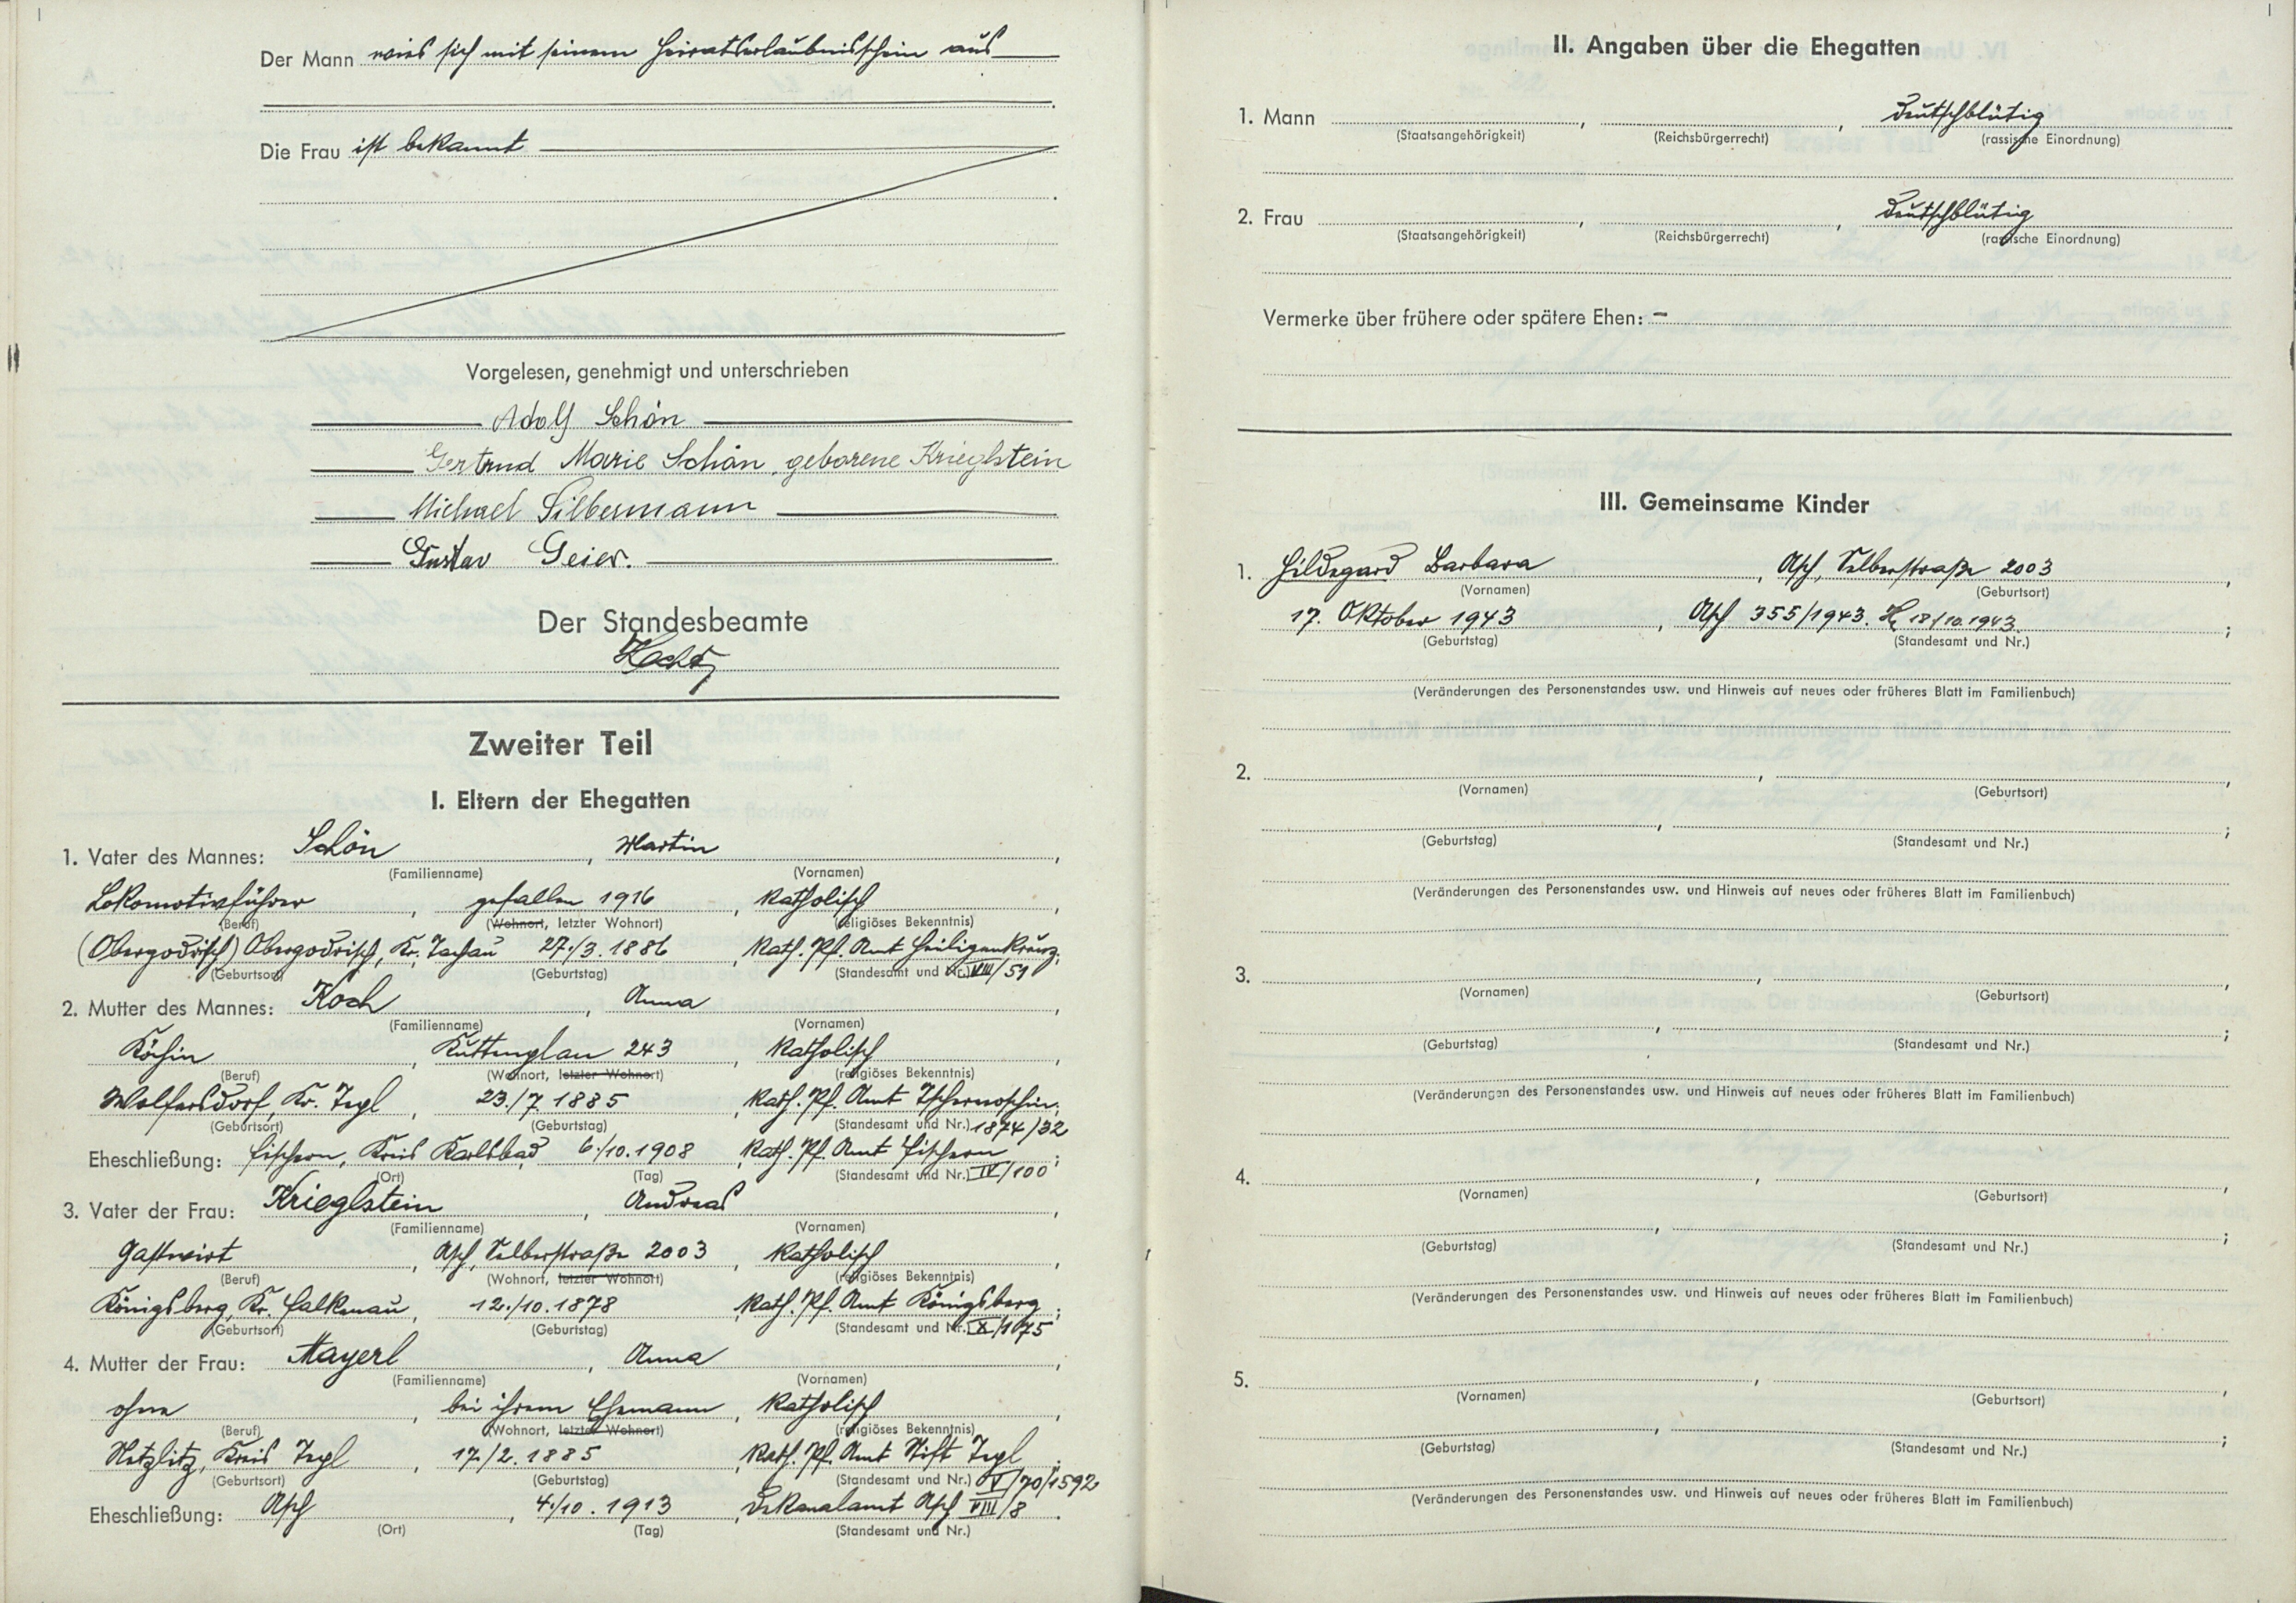 Der Mann wies sich mit seinem Heiratserlaubnisschein aus
Die Frau ist bekannt
Vorgelesen, genehmigt und unterschrieben
Adolf Schön
Gertrud Marie Schön, geborene Krieglstein
Michael Silbermann
Gustav Geier.
Der Standesbeamte
Zweiter Teil
I. Eltern der Ehegatten
1. Vater des Mannes: Schön, Martin,
(Familienname) (Vornamen)
Lokomotivführer, gefallen 1916, katholisch,
(Beruf) (Wohnort, letzter Wohnort) (religiöses Bekenntnis)
(Obergodrisch) Obergodrisch, Kr. Tachau 27./3. 1886, Kath. Pf. Amt Heiligenkreuz;
(Geburtsort) (Geburtstag) (Standesamt und Nr.) VIII/51
2. Mutter des Mannes: Koch, Anna,
(Familienname) (Vornamen)
Köchin, Kuttenplan 243, katholisch,
(Beruf) (Wohnort, letzter Wohnort) (religiöses Bekenntnis)
Wolfersdorf, Kr. Tepl, 23./7. 1885, Kath. Pf. Amt Tschernoschin;
(Geburtsort) (Geburtstag) (Standesamt und Nr.) 1874/32
Eheschließung: Fischern, Kreis Karlsbad 6./10. 1908, Kath. Pf. Amt Fischern;
(Ort) (Tag) (Standesamt und Nr.) IV/100
3. Vater der Frau: Krieglstein, Andreas,
(Familienname) (Vornamen)
Gastwirt, Asch, Selberstraße 2003, katholisch,
(Beruf) (Wohnort, letzter Wohnort) (religiöses Bekenntnis)
Königsberg, Kr. Falkenau, 12./10. 1878, Kath. Pf. Amt Königsberg;
(Geburtsort) (Geburtstag) (Standesamt und Nr.) X/175
4. Mutter der Frau: Mayerl, Anna,
(Familienname) (Vornamen)
ohne, bei ihrem Ehemann, katholisch,
(Beruf) (Wohnort, letzter Wohnort) (religiöses Bekenntnis)
Kreis Tepl, 17./2. 1885, Kath. Pf. Amt Stift Tepl;
(Geburtsort) (Geburtstag) (Standesamt und Nr.) V/70/1592
Eheschließung: Asch, 4./10. 1913, Dekanalamt Asch VIII/8.
(Ort) (Tag) (Standesamt und Nr.)
II. Angaben über die Ehegatten
1. Mann , , deutschblütig
(Staatsangehörigkeit) (Reichsbürgerrecht) (rassische Einordnung)
2. Frau , , deutschblütig
(Staatsangehörigkeit) (Reichsbürgerrecht) (rassische Einordnung)
Vermerke über frühere oder spätere Ehen: –
III. Gemeinsame Kinder
1. Hildegard Barbara, Asch, Selberstraße 2003,
(Vornamen) (Geburtsort)
17. Oktober 1943, Asch 355/1943. 18/10.1943.;
(Geburtstag) (Standesamt und Nr.)
(Veränderungen des Personenstandes usw. und Hinweis auf neues oder früheres Blatt im Familienbuch)
2. , ,
(Vornamen) (Geburtsort)
, ;
(Geburtstag) (Standesamt und Nr.)
(Veränderungen des Personenstandes usw. und Hinweis auf neues oder früheres Blatt im Familienbuch)
3. , ,
(Vornamen) (Geburtsort)
, ;
(Geburtstag) (Standesamt und Nr.)
(Veränderungen des Personenstandes usw. und Hinweis auf neues oder früheres Blatt im Familienbuch)
4. , ,
(Vornamen) (Geburtsort)
, ;
(Geburtstag) (Standesamt und Nr.)
(Veränderungen des Personenstandes usw. und Hinweis auf neues oder früheres Blatt im Familienbuch)
5. , ,
(Vornamen) (Geburtsort)
, ;
(Geburtstag) (Standesamt und Nr.)
(Veränderungen des Personenstandes usw. und Hinweis auf neues oder früheres Blatt im Familienbuch)